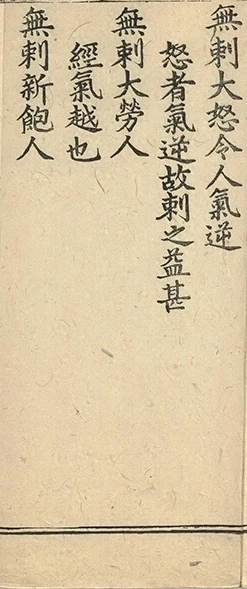 無刺大怒令人氣逆
怒者氣逆故刺之益甚
無刺大勞人
經氣越也
無刺新飽人